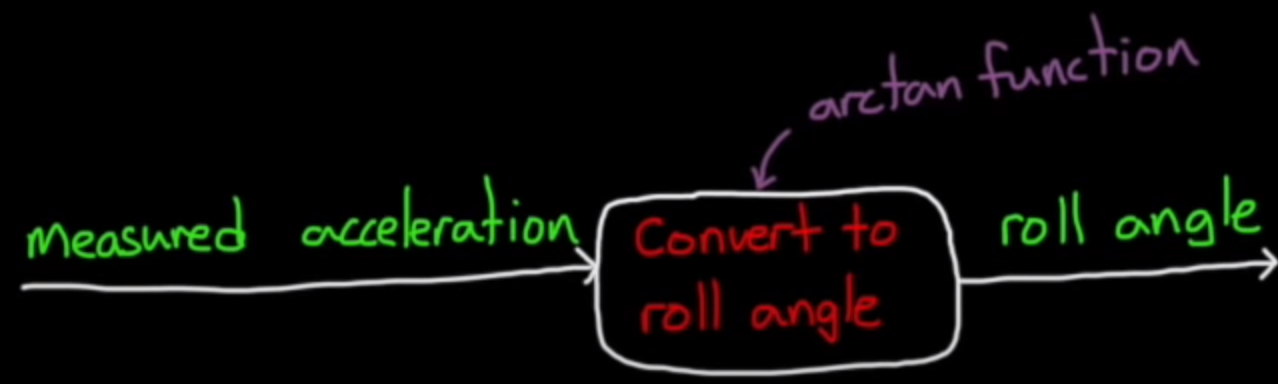 arctan function
measured acceleration
Convert to
roll angle
roll angle